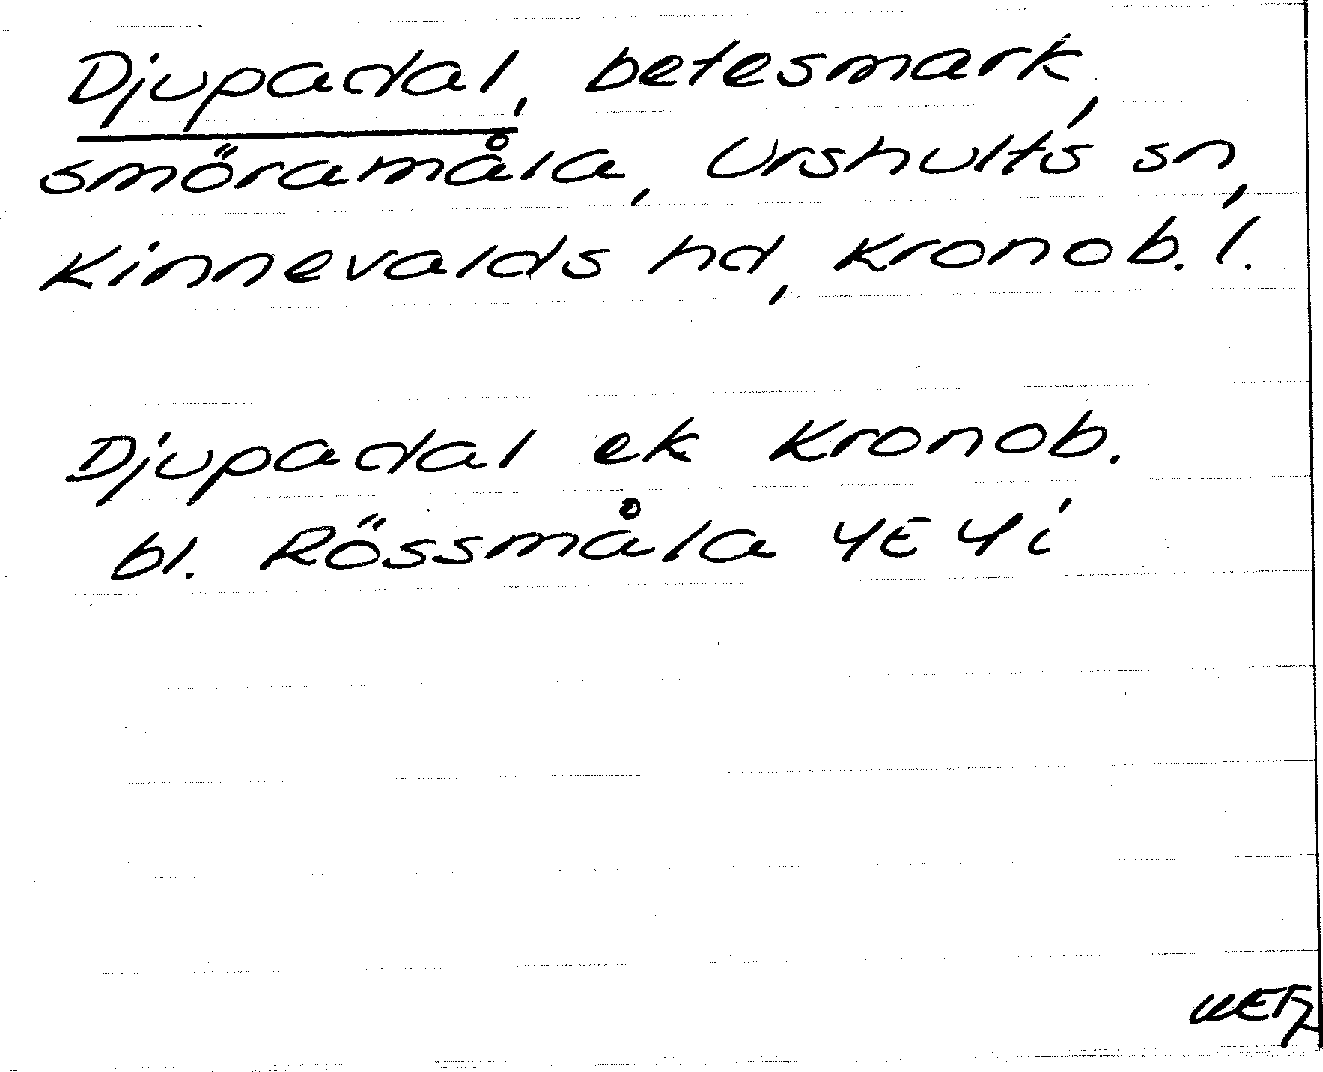 Djupadal, betesmark,
Smöramåla, Urshults sn,
Kinnevalds hd, Kronob. l.
Djupadal ek Kronob.
bl. Rössmåla 4E 4i